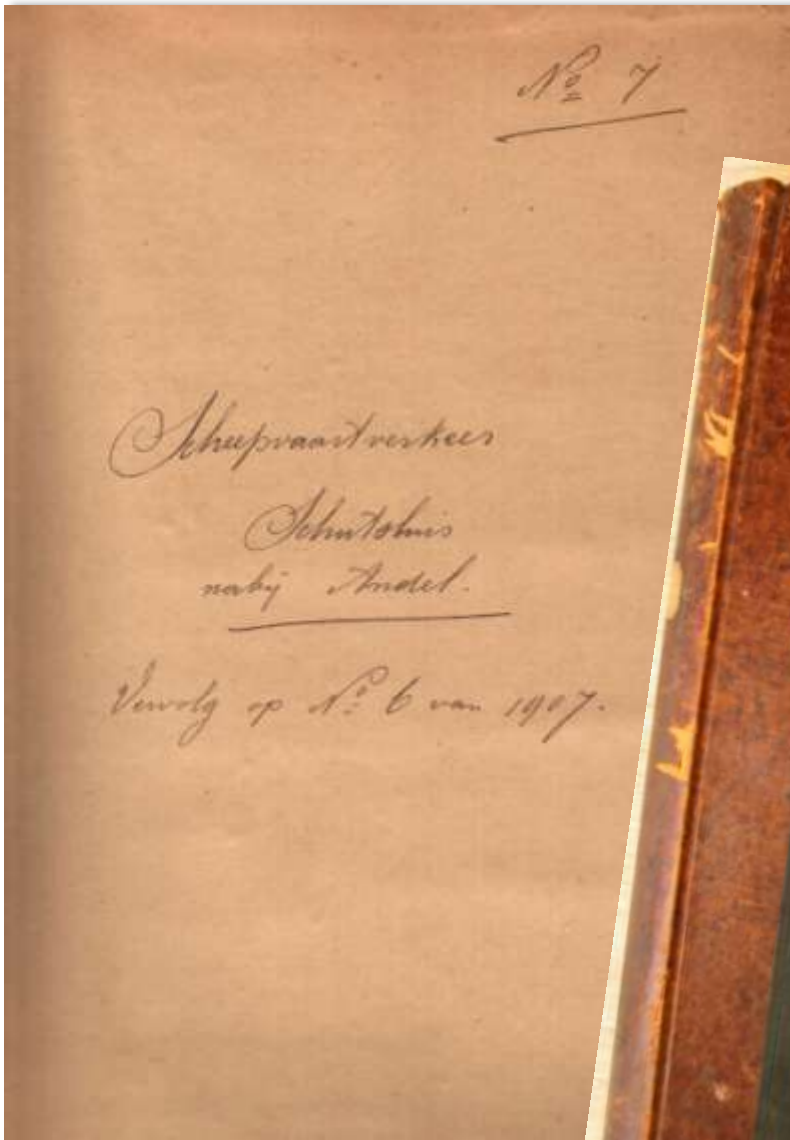 No 7
Scheepvaartverkeer
Schutsluis
nabij Andel.
Vervolg op No. 6 van 1907.